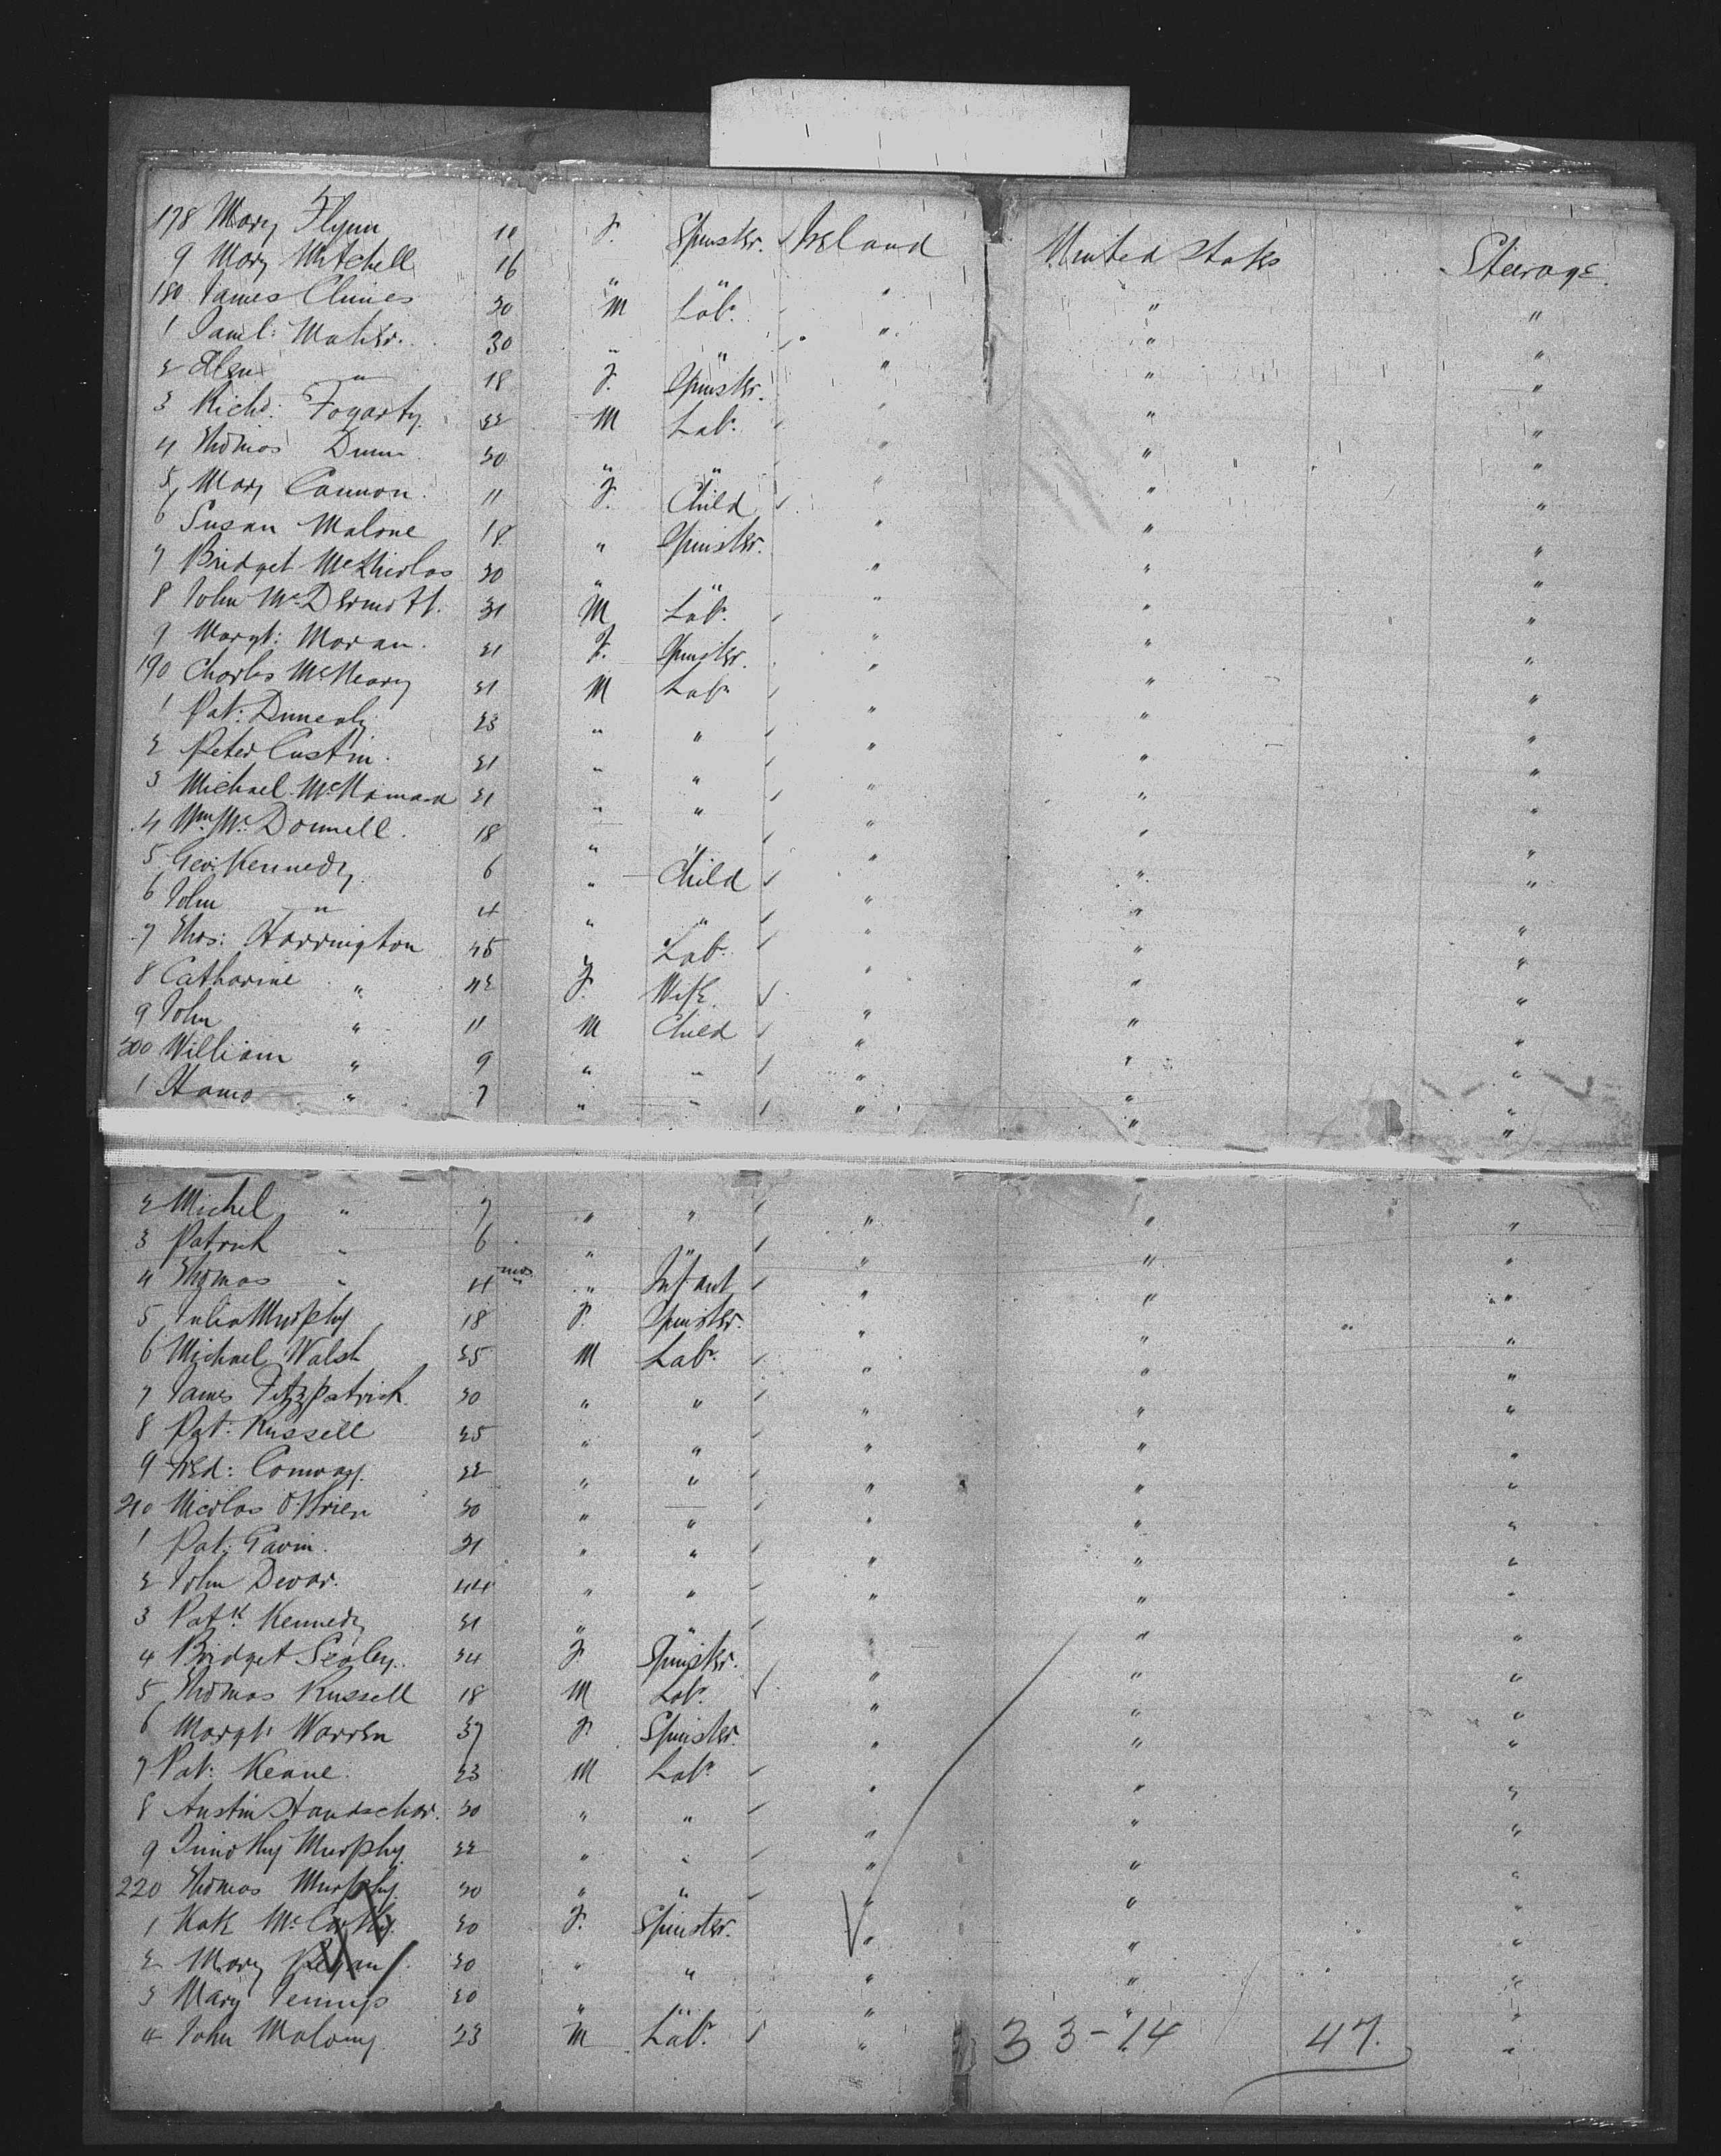 178 Mary Flynn 18 F. Spinster. Ireland United States Steerage.
9 Mary Mitchell 16 " " " " "
180 James Clines 20 M Labr. " " "
1 Danl: Maher. 30 " " " " "
2 Ellen " 18 F. Spinster. " " "
3 Richd: Fogarty. 22 M Labr. " " "
4 Thomas Dunn 20 " " " " "
5 Mary Cannon. 11 F. Child " " "
6 Susan Malone 18 " Spinster. " " "
7 Bridget McNicolas 20 " " " " "
8 John McDermott. 21 M Labr. " " "
9 Margt: Moran. 21 F. Spinster. " " "
190 Charles McNeary 21 M Labr " " "
1 Pat: Dunealy 23 " " " " "
2 Peter Custin. 21 " " " " "
3 Michael McNamara 21 " " " " "
4 Wm McDonnell. 18 " " " " "
5 Geo: Kennedy. 6 " Child " " "
6 John " 4 " " " " "
7 Thos: Harrington 45 " Labr. " " "
8 Catharine " 42 F. Wife. " " "
9 John " 11 M Child " " "
200 William " 9 " " " " "
1 " 7 " " " " "
2 Michel " 7 " " " " "
3 Patrick " 6 " " " " "
4 Thomas " 11 mos " Infant " " "
5 Julia Murphy 18 F. Spinster. " " "
6 Michael Walsh 25 M Labr. " " "
7 James Fitzpatrick. 20 " " " " "
8 Pat: Russell 25 " " " " "
9 Ned: Conway. 22 " " " " "
210 Nicolas O'Brien 20 " " " " "
1 Pat: Gavin. 21 " " " " "
2 John Devar. 44 " " " " "
3 Patk Kennedy 21 " " " " "
4 Bridget Scoley. 24 F Spinster. " " "
5 Thomas Russell 18 M Labr. " " "
6 Margt: Warren 37 F. Spinster. " " "
7 Pat: Keane. 23 M Labr " " "
8 Austin 20 " " " " "
9 Timothy Murphy. 22 " " " " "
220 Thomas Murphy. 20 " " " " "
1 Kate McCarthy. 20 F. Spinster. " " "
2 Mary Regan 20 " " " " "
3 Mary Jennings 20 " " " " "
4 John Malony. 23 M Labr. " " "
33-14 47.